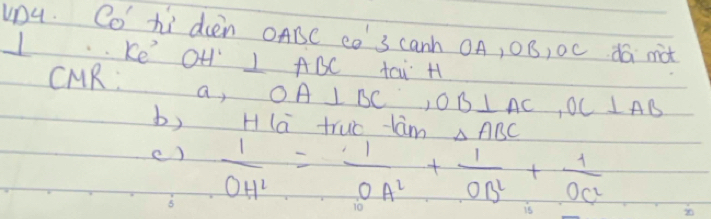 VD4. Có tứ diện OABC có 3 cạnh OA, OB, OC đôi một
⊥ .. Kẻ OH ⊥ ABC tại H
CMR: a, OA ⊥ BC, OB ⊥ AC, OC ⊥ AB
b) H là trực tâm △ ABC
c) 1/OH² = 1/OA² + 1/OB² + 1/OC²
5 10 15 20